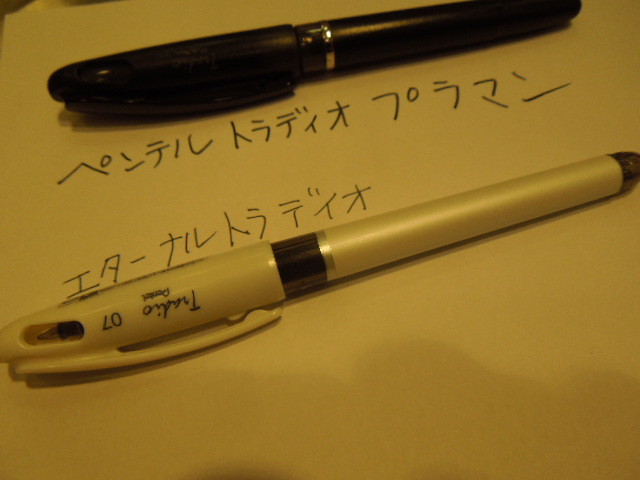 Tradio
ペンテル トラディオ プラマン
エターナルトラディオ
Tradio 07
Pentel